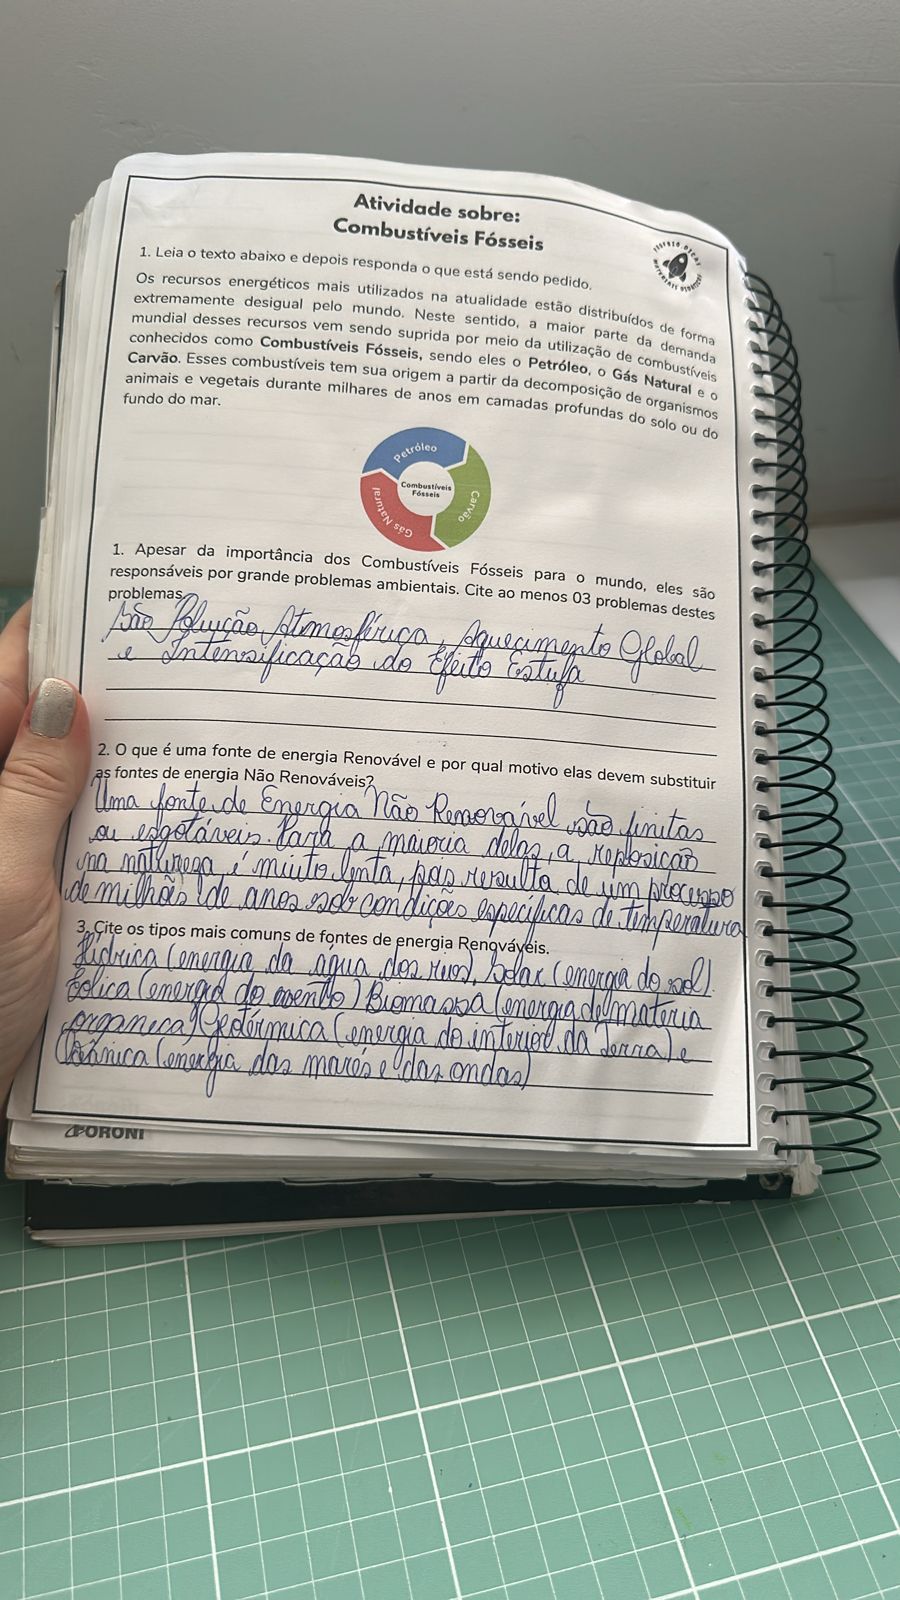 Atividade sobre:
Combustíveis Fósseis
ESPAÇO
MATERIAIS DIDÁTICOS
1. Leia o texto abaixo e depois responda o que está sendo pedido.
Os recursos energéticos mais utilizados na atualidade estão distribuídos de forma
extremamente desigual pelo mundo. Neste sentido, a maior parte da demanda
mundial desses recursos vem sendo suprida por meio da utilização de combustíveis
conhecidos como Combustíveis Fósseis, sendo eles o Petróleo, o Gás Natural e o
Carvão. Esses combustíveis tem sua origem a partir da decomposição de organismos
animais e vegetais durante milhares de anos em camadas profundas do solo ou do
fundo do mar.
Petróleo
Combustíveis
Fósseis
Carvão
Gás Natural
1. Apesar da importância dos Combustíveis Fósseis para o mundo, eles são
responsáveis por grande problemas ambientais. Cite ao menos 03 problemas destes
problemas
São Poluição Atmosférica, Aquecimento Global
e Intensificação do Efeito Estufa
2. O que é uma fonte de energia Renovável e por qual motivo elas devem substituir
as fontes de energia Não Renováveis?
Uma fonte de Energia Não Renovável são finitas
ou esgotáveis. Para a maioria delas, a reposição
na natureza é muito lenta, pois resulta de um processo
de milhões de anos sob condições específicas de temperatura
3. Cite os tipos mais comuns de fontes de energia Renováveis.
Hídrica (energia da água dos rios), Solar (energia do sol)
Eólica (energia do vento) Biomassa (energia de matéria
orgânica) Geotérmica (energia do interior da Terra) e
(energia das marés e das ondas)
FORONI